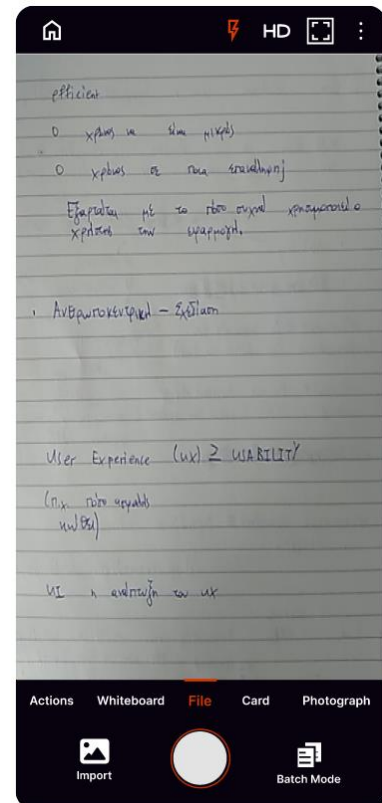 HD
efficient
Ο χρόνος να είναι μικρός
Ο χρόνος σε ποια επανάληψη
Εξαρτάται με το πόσο συχνά χρησιμοποιεί ο
χρήστης την εφαρμογή.
Ανθρωποκεντρική - Σχεδίαση
User Experience (UX) ≥ USABILITY
(π.χ. πόσο
UI η ανάπτυξη του UX
Actions Whiteboard File Card Photograph
Import
Batch Mode